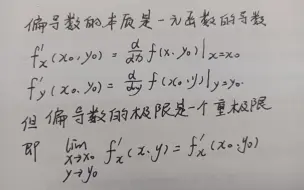 偏导数的本质是一元函数的导数
f'ₓ(x₀,y₀) = d/dx f(x,y₀)|ₓ₌ₓ₀
f'ᵧ(x₀,y₀) = d/dy f(x₀,y)|y=y₀.
但偏导数的极限是一个重极限
即 lim x→x₀ y→y₀ f'ₓ(x,y) = f'ₓ(x₀,y₀)